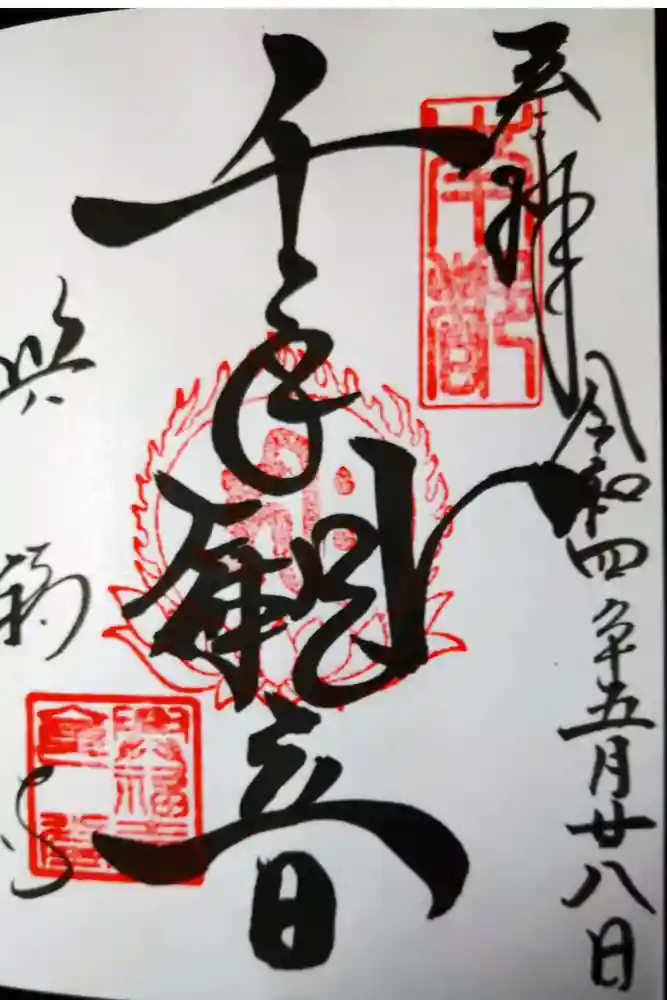 奉拝 令和四年五月廿八日
千手観音
興福寺